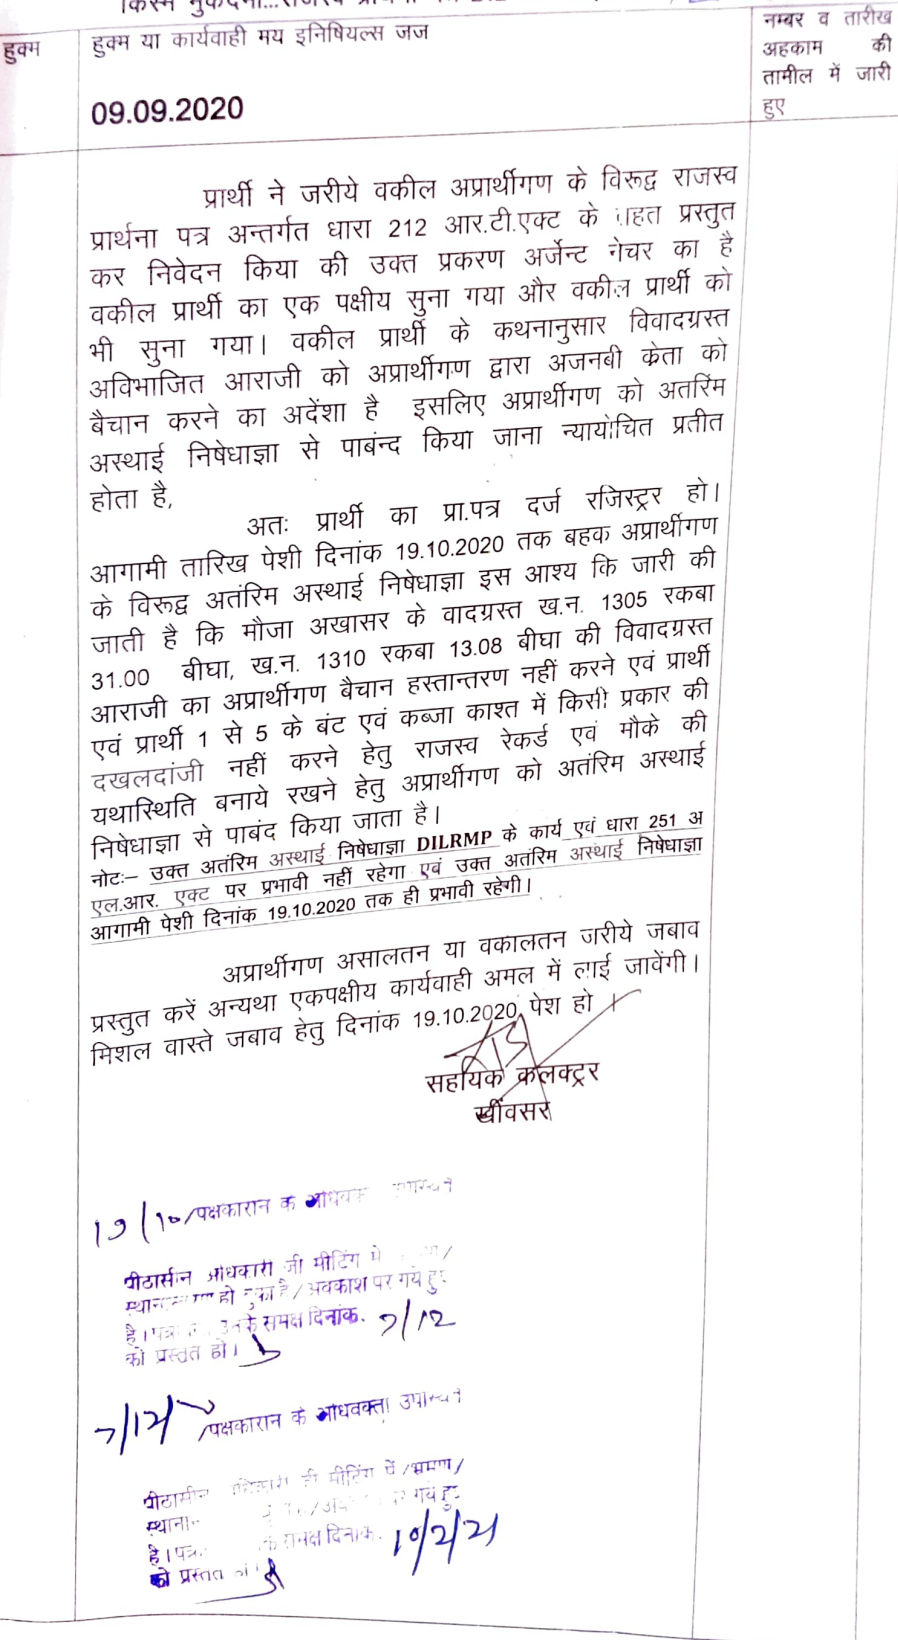 किस्म मुकदमा...राजस्व
हुक्म
हुक्म या कार्यवाही मय इनिषियल्स जज
नम्बर व तारीख
अहकाम की
तामील में जारी
हुए
09.09.2020
प्रार्थी ने जरीये वकील अप्रार्थीगण के विरूद्व राजस्व
प्रार्थना पत्र अन्तर्गत धारा 212 आर.टी.एक्ट के तहत प्रस्तुत
कर निवेदन किया की उक्त प्रकरण अर्जेन्ट नेचर का है
वकील प्रार्थी का एक पक्षीय सुना गया और वकील प्रार्थी को
भी सुना गया। वकील प्रार्थी के कथनानुसार विवादग्रस्त
अविभाजित आराजी को अप्रार्थीगण द्वारा अजनबी क्रेता को
बैचान करने का अदेंशा है इसलिए अप्रार्थीगण को अतरिंम
अस्थाई निषेधाज्ञा से पाबंन्द किया जाना न्यायोचित प्रतीत
होता है,
अतः प्रार्थी का प्रा.पत्र दर्ज रजिस्ट्रर हो।
आगामी तारिख पेशी दिनांक 19.10.2020 तक बहक अप्रार्थीगण
के विरूद्व अतंरिम अस्थाई निषेधाज्ञा इस आश्य कि जारी की
जाती है कि मौजा अखासर के वादग्रस्त ख.न. 1305 रकबा
31.00 बीघा, ख.न. 1310 रकबा 13.08 बीघा की विवादग्रस्त
आराजी का अप्रार्थीगण बैचान हस्तान्तरण नहीं करने एवं प्रार्थी
एवं प्रार्थी 1 से 5 के बंट एवं कब्जा काश्त में किसी प्रकार की
दखलदांजी नहीं करने हेतु राजस्व रेकर्ड एवं मौके की
यथास्थिति बनाये रखने हेतु अप्रार्थीगण को अतंरिम अस्थाई
निषेधाज्ञा से पाबंद किया जाता है।
नोटः– उक्त अतंरिम अस्थाई निषेधाज्ञा DILRMP के कार्य एवं धारा 251 अ
एल.आर. एक्ट पर प्रभावी नहीं रहेगा एवं उक्त अतंरिम अस्थाई निषेधाज्ञा
आगामी पेशी दिनांक 19.10.2020 तक ही प्रभावी रहेगी।
अप्रार्थीगण असालतन या वकालतन जरीये जबाव
प्रस्तुत करें अन्यथा एकपक्षीय कार्यवाही अमल में लाई जावेंगी।
मिशल वास्ते जबाव हेतु दिनांक 19.10.2020 पेश हो
सहायिक कलक्ट्रर
खींवसर
19/10/पक्षकारान के अधिवक्ता उपस्थित
पीठासीन अधिकारी जी मीटिंग में
हो चुका है/अवकाश पर गये हुए
है। उनके समक्ष दिनांक. 7/12
को प्रस्तुत हो।
7/12/20 /पक्षकारान के अधिवक्ता उपस्थित
पीठासीन अधिकारी जी मीटिंग में/भ्रमण/
पर गये हुए
है। के समक्ष दिनांक. 10/2/21
को प्रस्तुत